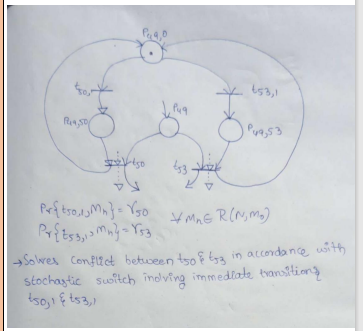 P49,0
t50,1 t53,1
P49,50 P49 P49,53
t50 t53
Pr{t50,1, Mn} = γ50
Pr{t53,1, Mn} = γ53 ∀ Mn ∈ R(N, M0)
→ Solves conflict between t50 & t53 in accordance with
stochastic switch inolving immediate transitions
t50,1 & t53,1